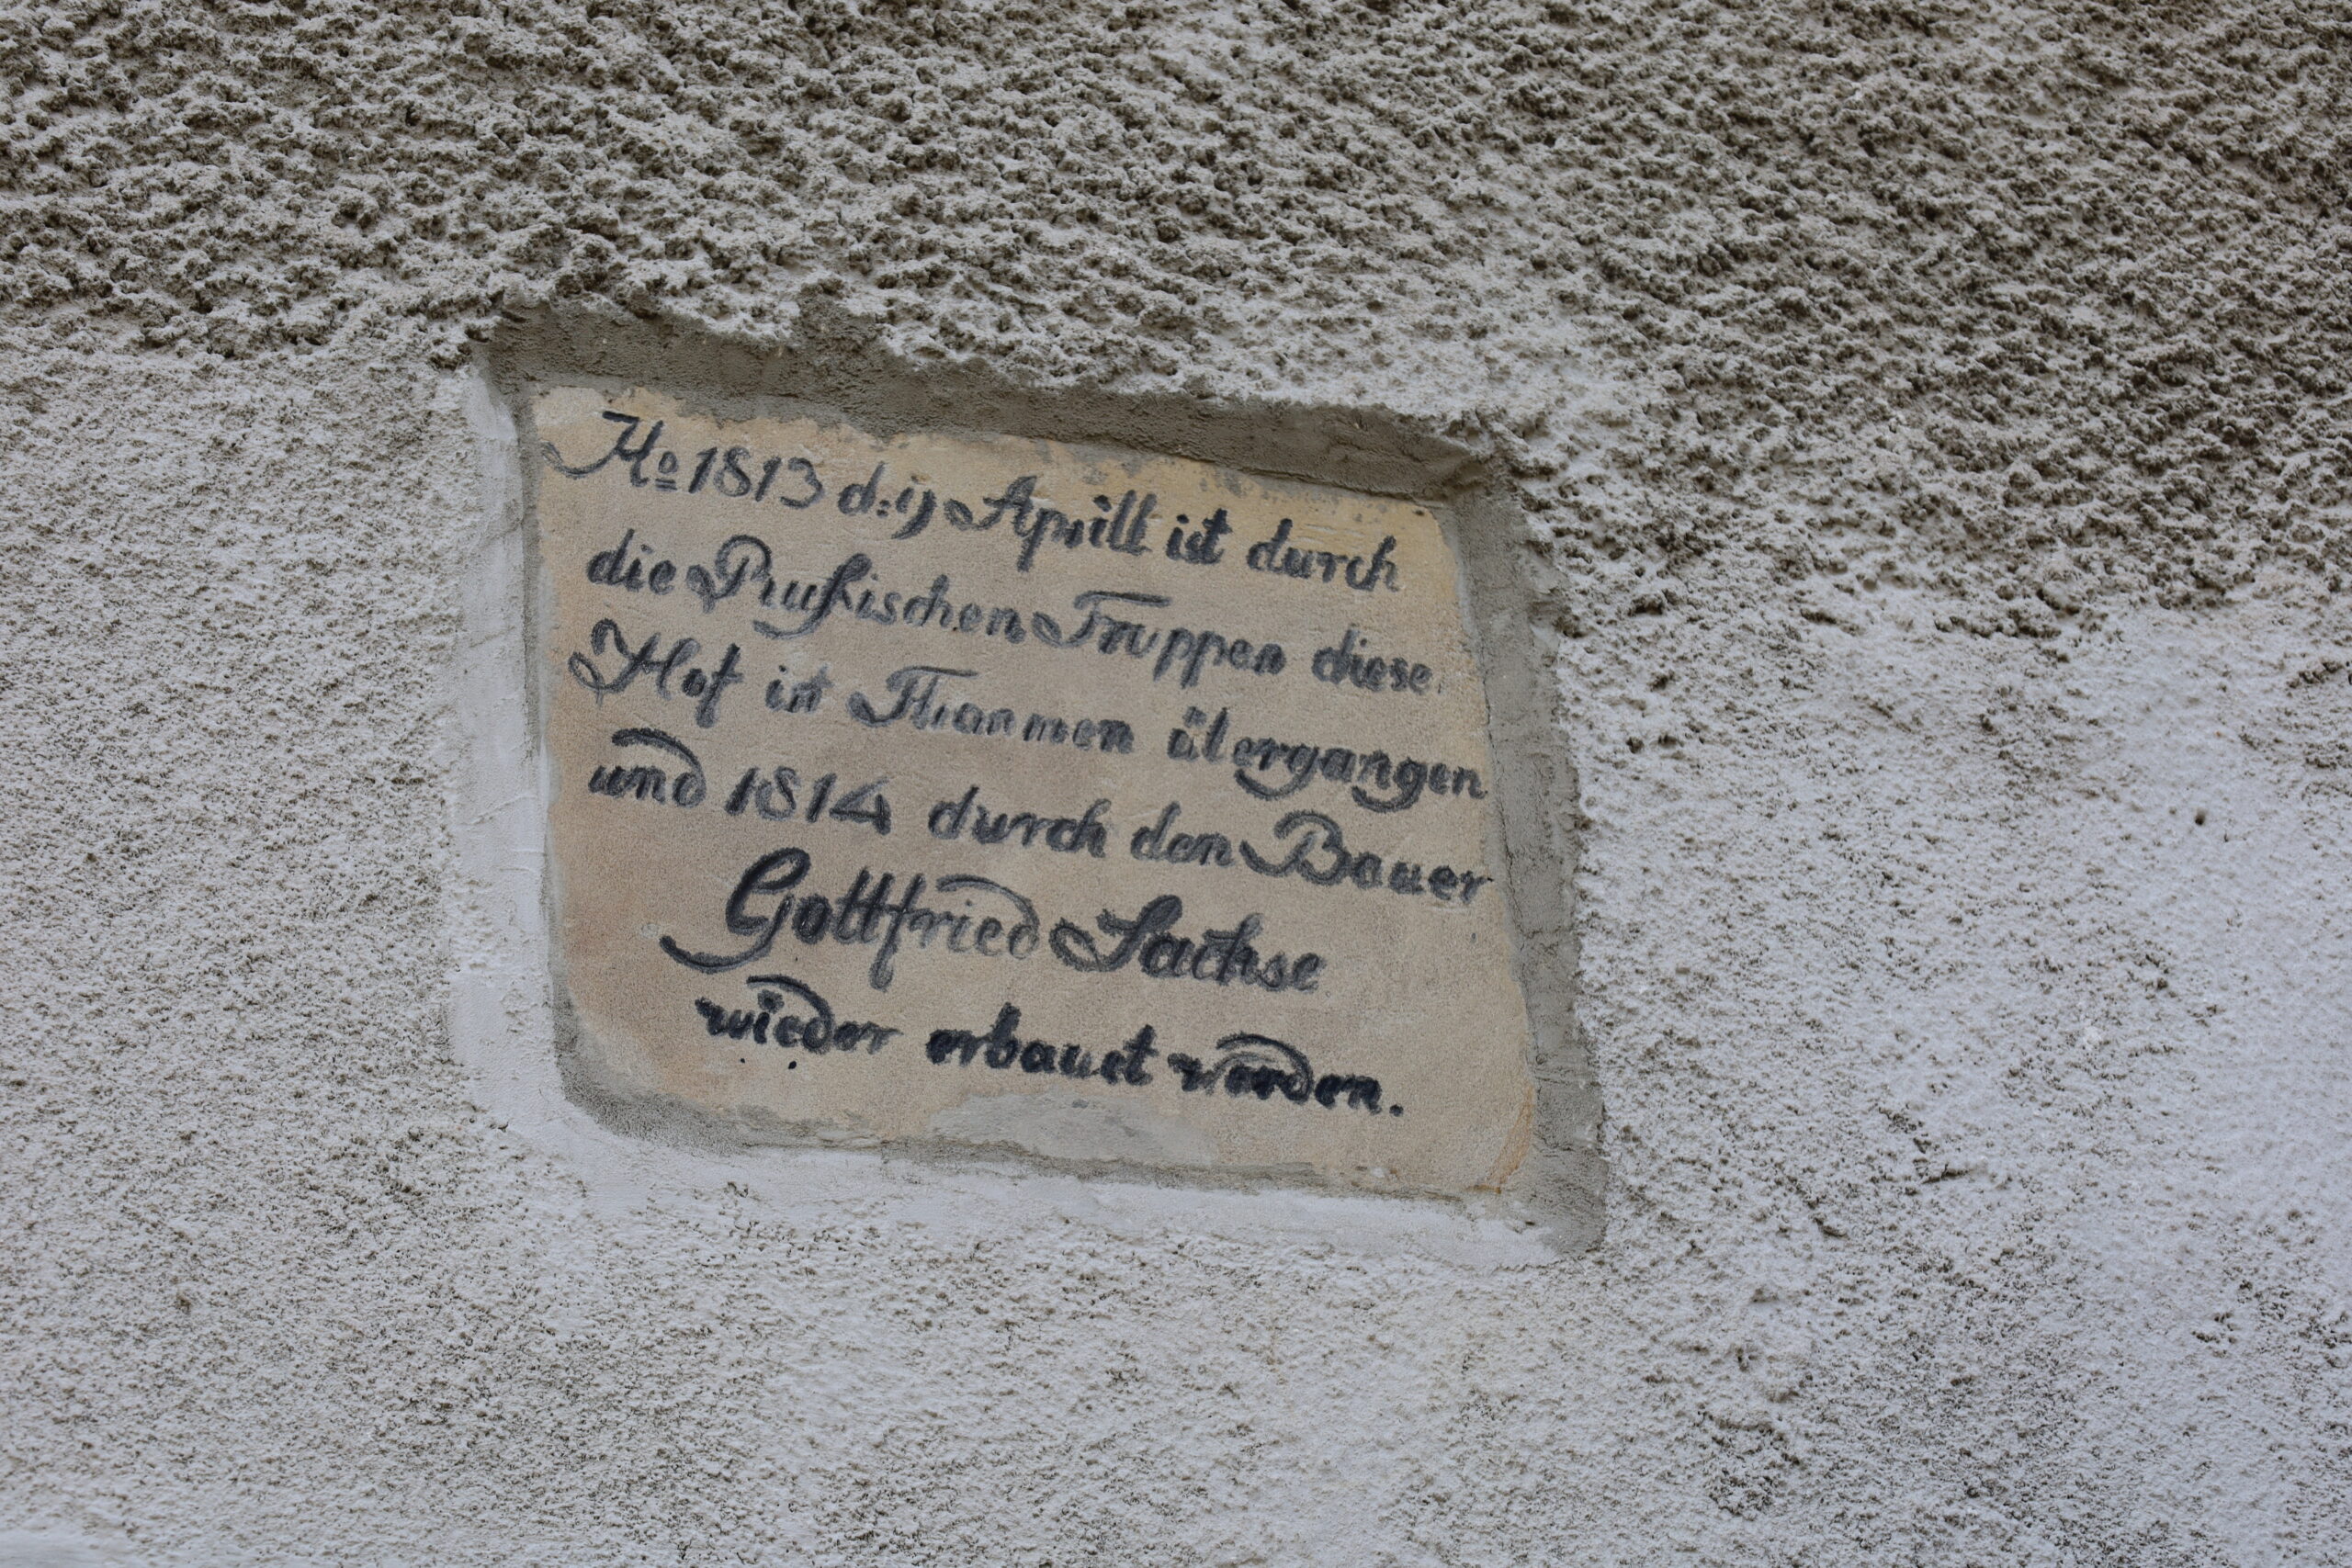 Ao 1813 d: 9 Aprill ist durch
die Prußischen Truppen diese
Hof in Flammen übergangen
und 1814 durch den Bauer
Gottfried Sachse
wieder erbauet worden.